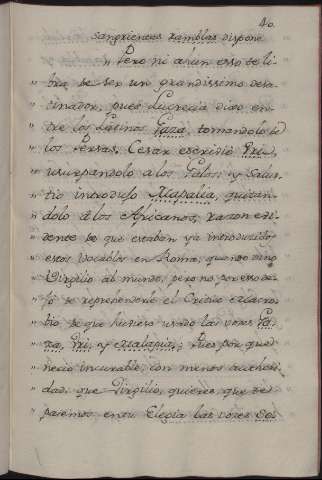 40.
Sangrientos zamblas dispone
" Pero ni ahun esso te li-
" bra de ser un grandissimo desa-
" tinador, pues Lucrecia dixo en-
" tre los Latinos Gaza, tomandolo de
" los Persas, Cesar escribió Uri,
" usurpandolo a los Galos: y Salus-
" tio introduso Mapalia, quitan-
" dolo à los Africanos, razon evi-
" dente de que estaban ya introducidos
" estos vocablos en Roma, quando vino
" Virgilio al mundo, pero no por esso de-
" jó de reprehenderle el Critico
" de que huviese usado las voces Ga-
" za, Uri, y Mapalia; Pues por que
" necio incurable, con menos authori-
" dad, que Virgilio, quieres, que te
" pasemos en tu Elegia las voces